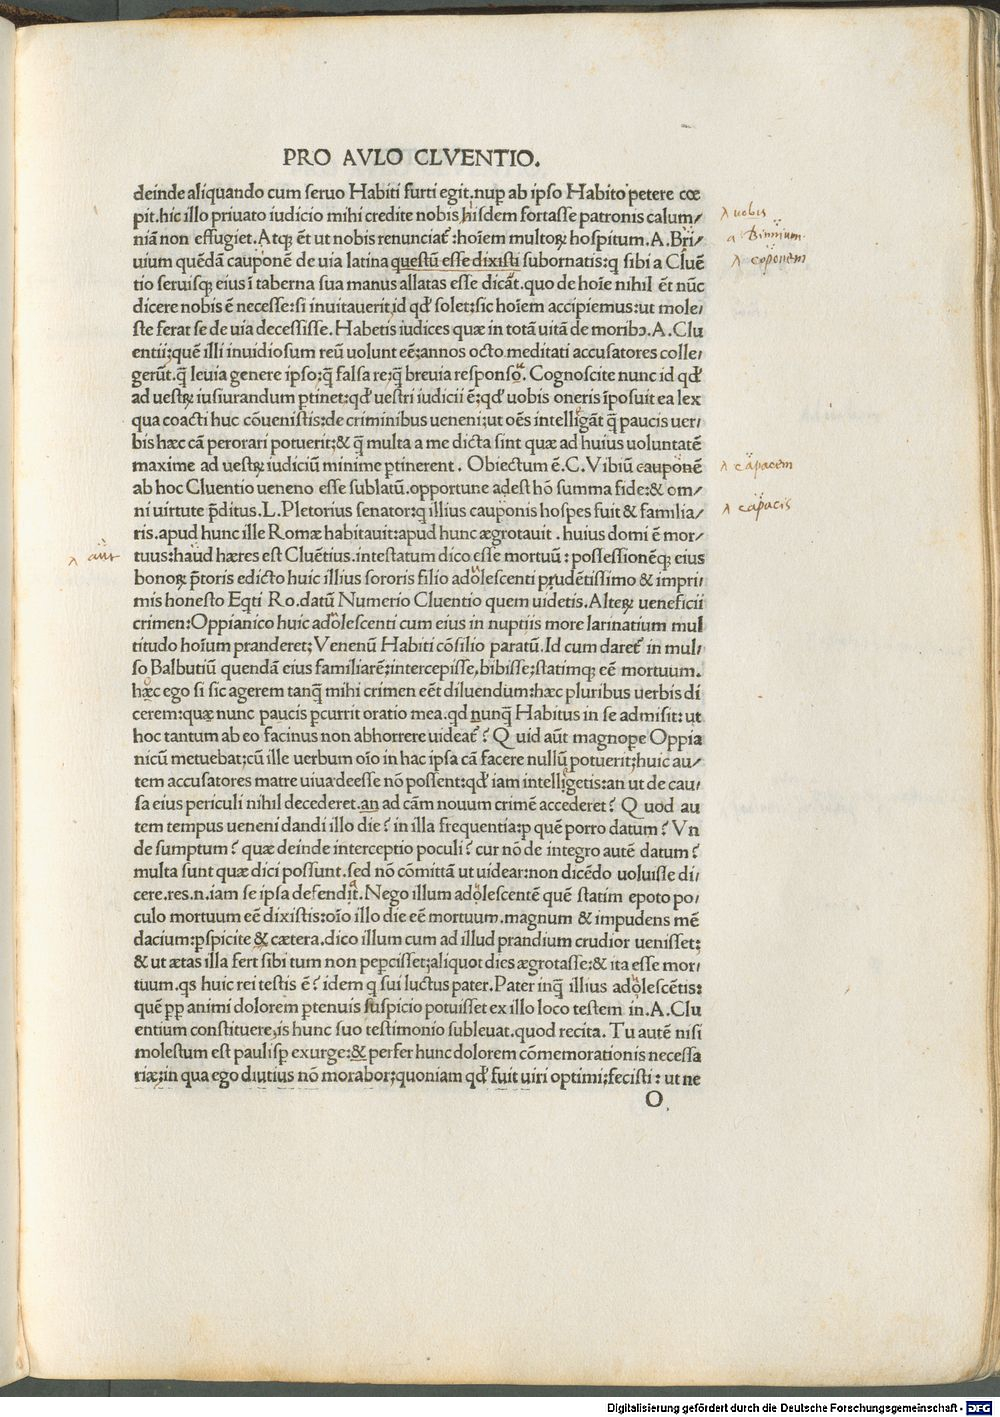 PRO AVLO CLVENTIO.
deinde aliquando cum seruo Habiti furti egit.nup̲ ab ipso Habito petere cœ
pit.hic illo priuato iudicio mihi credite nobis hisdem fortasse patronis calum/
niã non effugiet.Atq; ẽt ut nobis renunciat᷑:hoĩem multoꝝ hospitum.A.Bri/
λ uobis
a Binnium
uium quẽdã cauponẽ de uia latina questũ esse dixisti subornatis:q sibi a Cluẽ
λ coponem
tio seruisq; eius ĩ taberna sua manus allatas esse dicãt.quo de hoĩe nihil ẽt nũc
dicere nobis ẽ necesse:si inuitauerit,id qd᷑ solet;sic hoĩem accipiemus:ut mole/
ste ferat se de uia decessisse.Habetis iudices quæ in totã uitã de moribꝫ.A.Clu
entii;quẽ illi inuidiosum reũ uolunt eẽ:annos octo meditati accusatores colle/
gerũt.q̃ leuia genere ipso;q̃ falsa re;q̃ breuia responso. Cognoscite nunc id qd᷑
ad uestꝝ iusiurandum ꝑtinet:qd᷑ uestri iudicii ẽ;qd᷑ uobis oneris ĩposuit ea lex
qua coacti huc cõuenistis:de criminibus ueneni;ut oẽs intelligãt q̃ paucis uer/
bis hæc cã perorari potuerit;& q̃ multa a me dicta sint quæ ad huius uoluntatẽ
maxime ad uestꝝ iudiciũ minime ꝑtinerent. Obiectum ẽ.C.Vibiũ cauponẽ
λ capacem
ab hoc Cluentio ueneno esse sublatũ.opportune adest hõ summa fide:& om/
ni uirtute p̃ditus.L.Pletorius senator:q illius cauponis hospes fuit & familia/
λ capacis
ris.apud hunc ille Romæ habitauit:apud hunc ægrotauit.huius domi ẽ mor/
λ aut
tuus:haud hæres est Cluẽtius.intestatum dico esse mortuũ:possessionẽq; eius
bonoꝝ p̃toris edicto huic illius sororis filio adolescenti prudẽtissimo & impri/
mis honesto Eqti Ro.datũ Numerio Cluentio quem uidetis.Alteꝝ ueneficii
crimen:Oppianico huic adolescenti cum eius in nuptiis more larinatium mul
titudo hoĩum pranderet;Venenũ Habiti cõsilio paratũ.Id cum daret᷑ in mul/
so Balbutiũ quendã eius familiarẽ;intercepisse,bibisse;statimq; eẽ mortuum.
hæc ego si sic agerem tanq̃ mihi crimen eẽt diluendum:hæc pluribus uerbis di
cerem:quæ nunc paucis ꝑcurrit oratio mea.qd nunq̃ Habitus in se admisit:ut
hoc tantum ab eo facinus non abhorrere uideat᷑? Quid aũt magnope Oppia
nicũ metuebat;cũ ille uerbum oĩo in hac ipsa cã facere nullũ potuerit;huic au/
tem accusatores matre uiua deesse nõ possent:qd᷑ iam intelligetis:an ut de cau/
sa eius periculi nihil decederet.an ad cãm nouum crimẽ accederet? Quod au
tem tempus ueneni dandi illo die? in illa frequentia:p quẽ porro datum? Vn
de sumptum? quæ deinde interceptio poculi? cur nõ de integro autẽ datum?
multa sunt quæ dici possunt.sed nõ cõmittã ut uidear:non dicẽdo uoluisse di/
cere.res.n.iam se ipsa defendit.Nego illum adolescentẽ quẽ statim epoto po/
culo mortuum eẽ dixistis:oĩo illo die eẽ mortuum.magnum & impudens mẽ
dacium:ꝑspicite & cætera.dico illum cum ad illud prandium crudior uenisset;
& ut ætas illa fert sibi tum non peꝑcisset;aliquot dies ægrotasse:& ita esse mor/
tuum.qs huic rei testis ẽ? idem q sui luctus pater.Pater inq̃ illius adolescẽtis:
quẽ pp animi dolorem ꝑtenuis suspicio potuisset ex illo loco testem in.A.Clu
entium constituere,is hunc suo testimonio subleuat.quod recita. Tu autẽ nisi
molestum est paulisꝑ exurge:& perfer hunc dolorem cõmemorationis necessa
riæ;in qua ego diutius nõ morabor;quoniam qd᷑ fuit uiri optimi;fecisti:ut ne
O
Digitalisierung gefördert durch die Deutsche Forschungsgemeinschaft - DFG